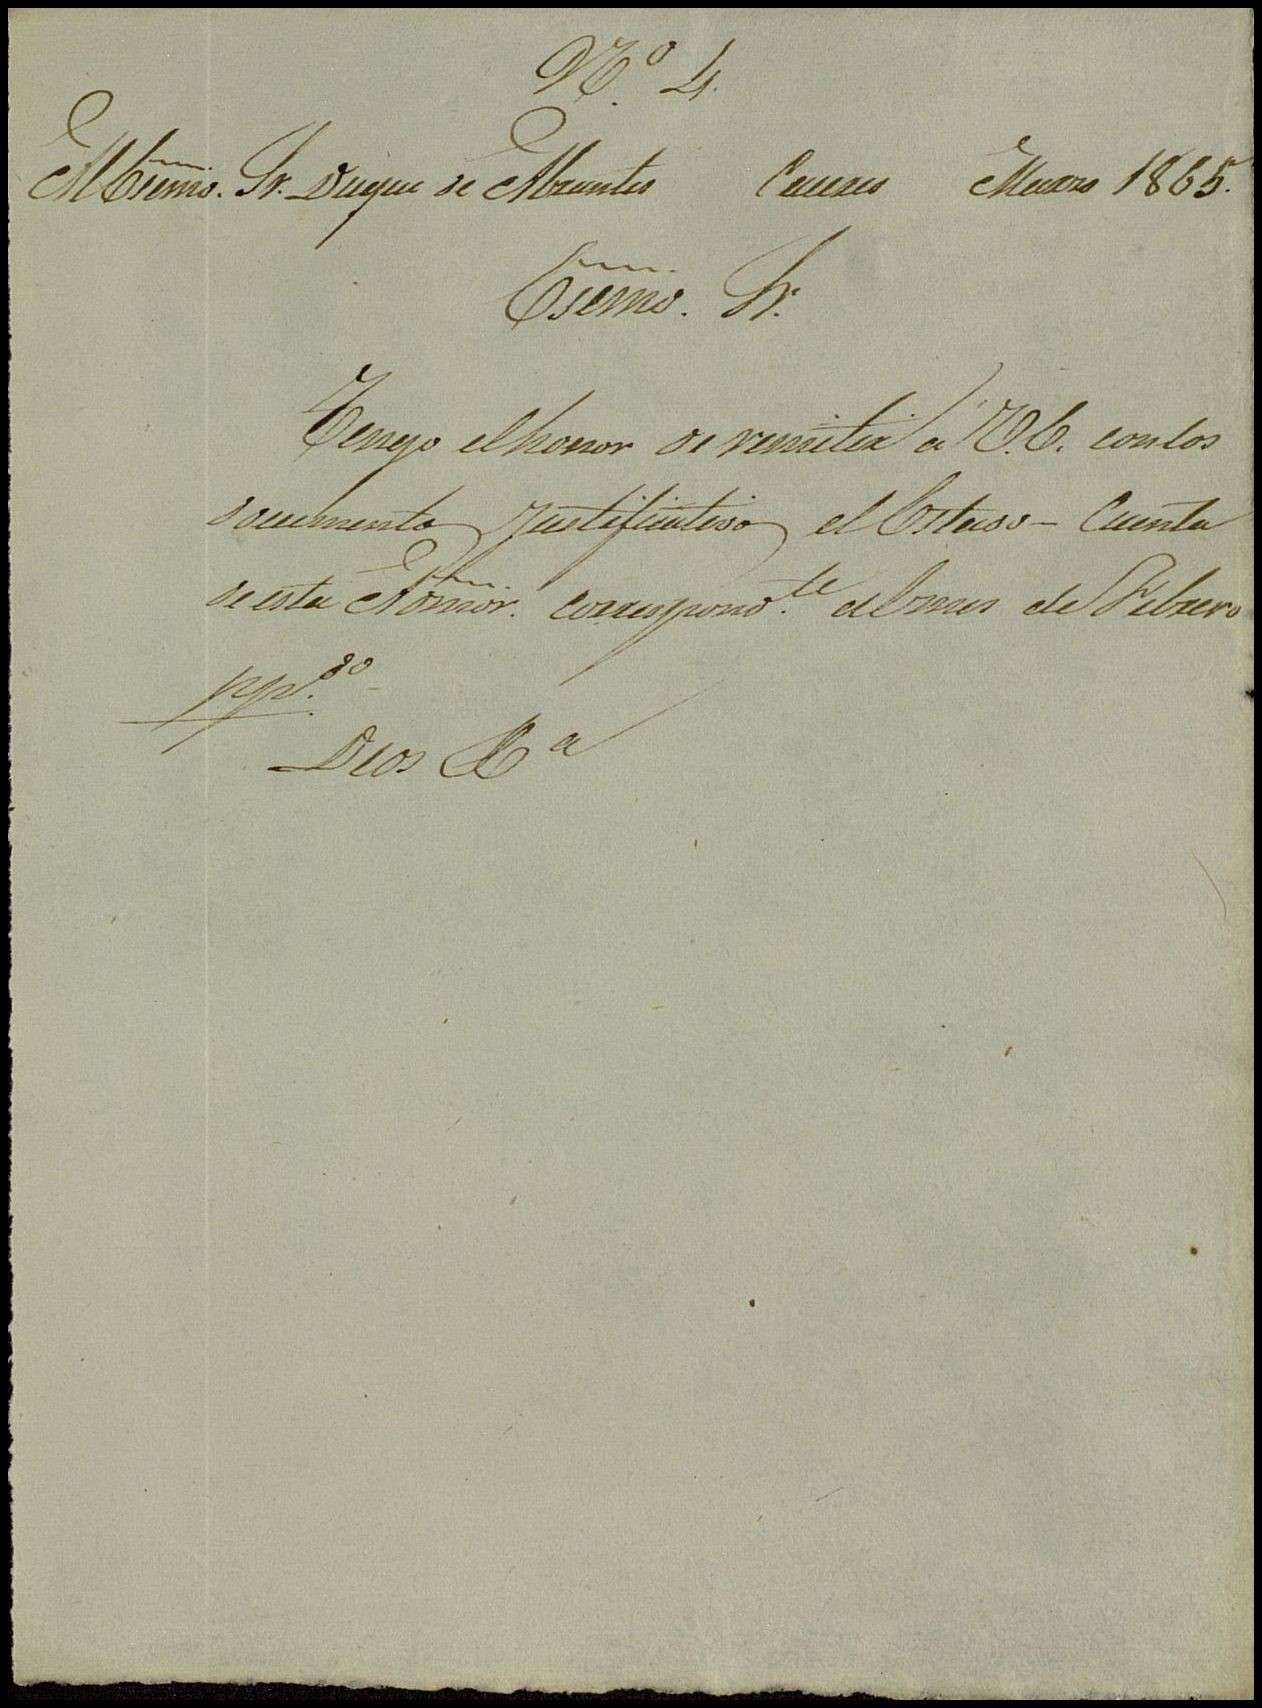 N.º 4.
Al Escmo. Sr. Duque de Abrantes Caceres Marzo 1865.
Escmo. Sr.
Tengo el honor de remitir a V.E. con los
documentos justificativos el Estado-Cuenta
de esta Admor. correspond.te al mes de Febrero
pp.do
Dios &a